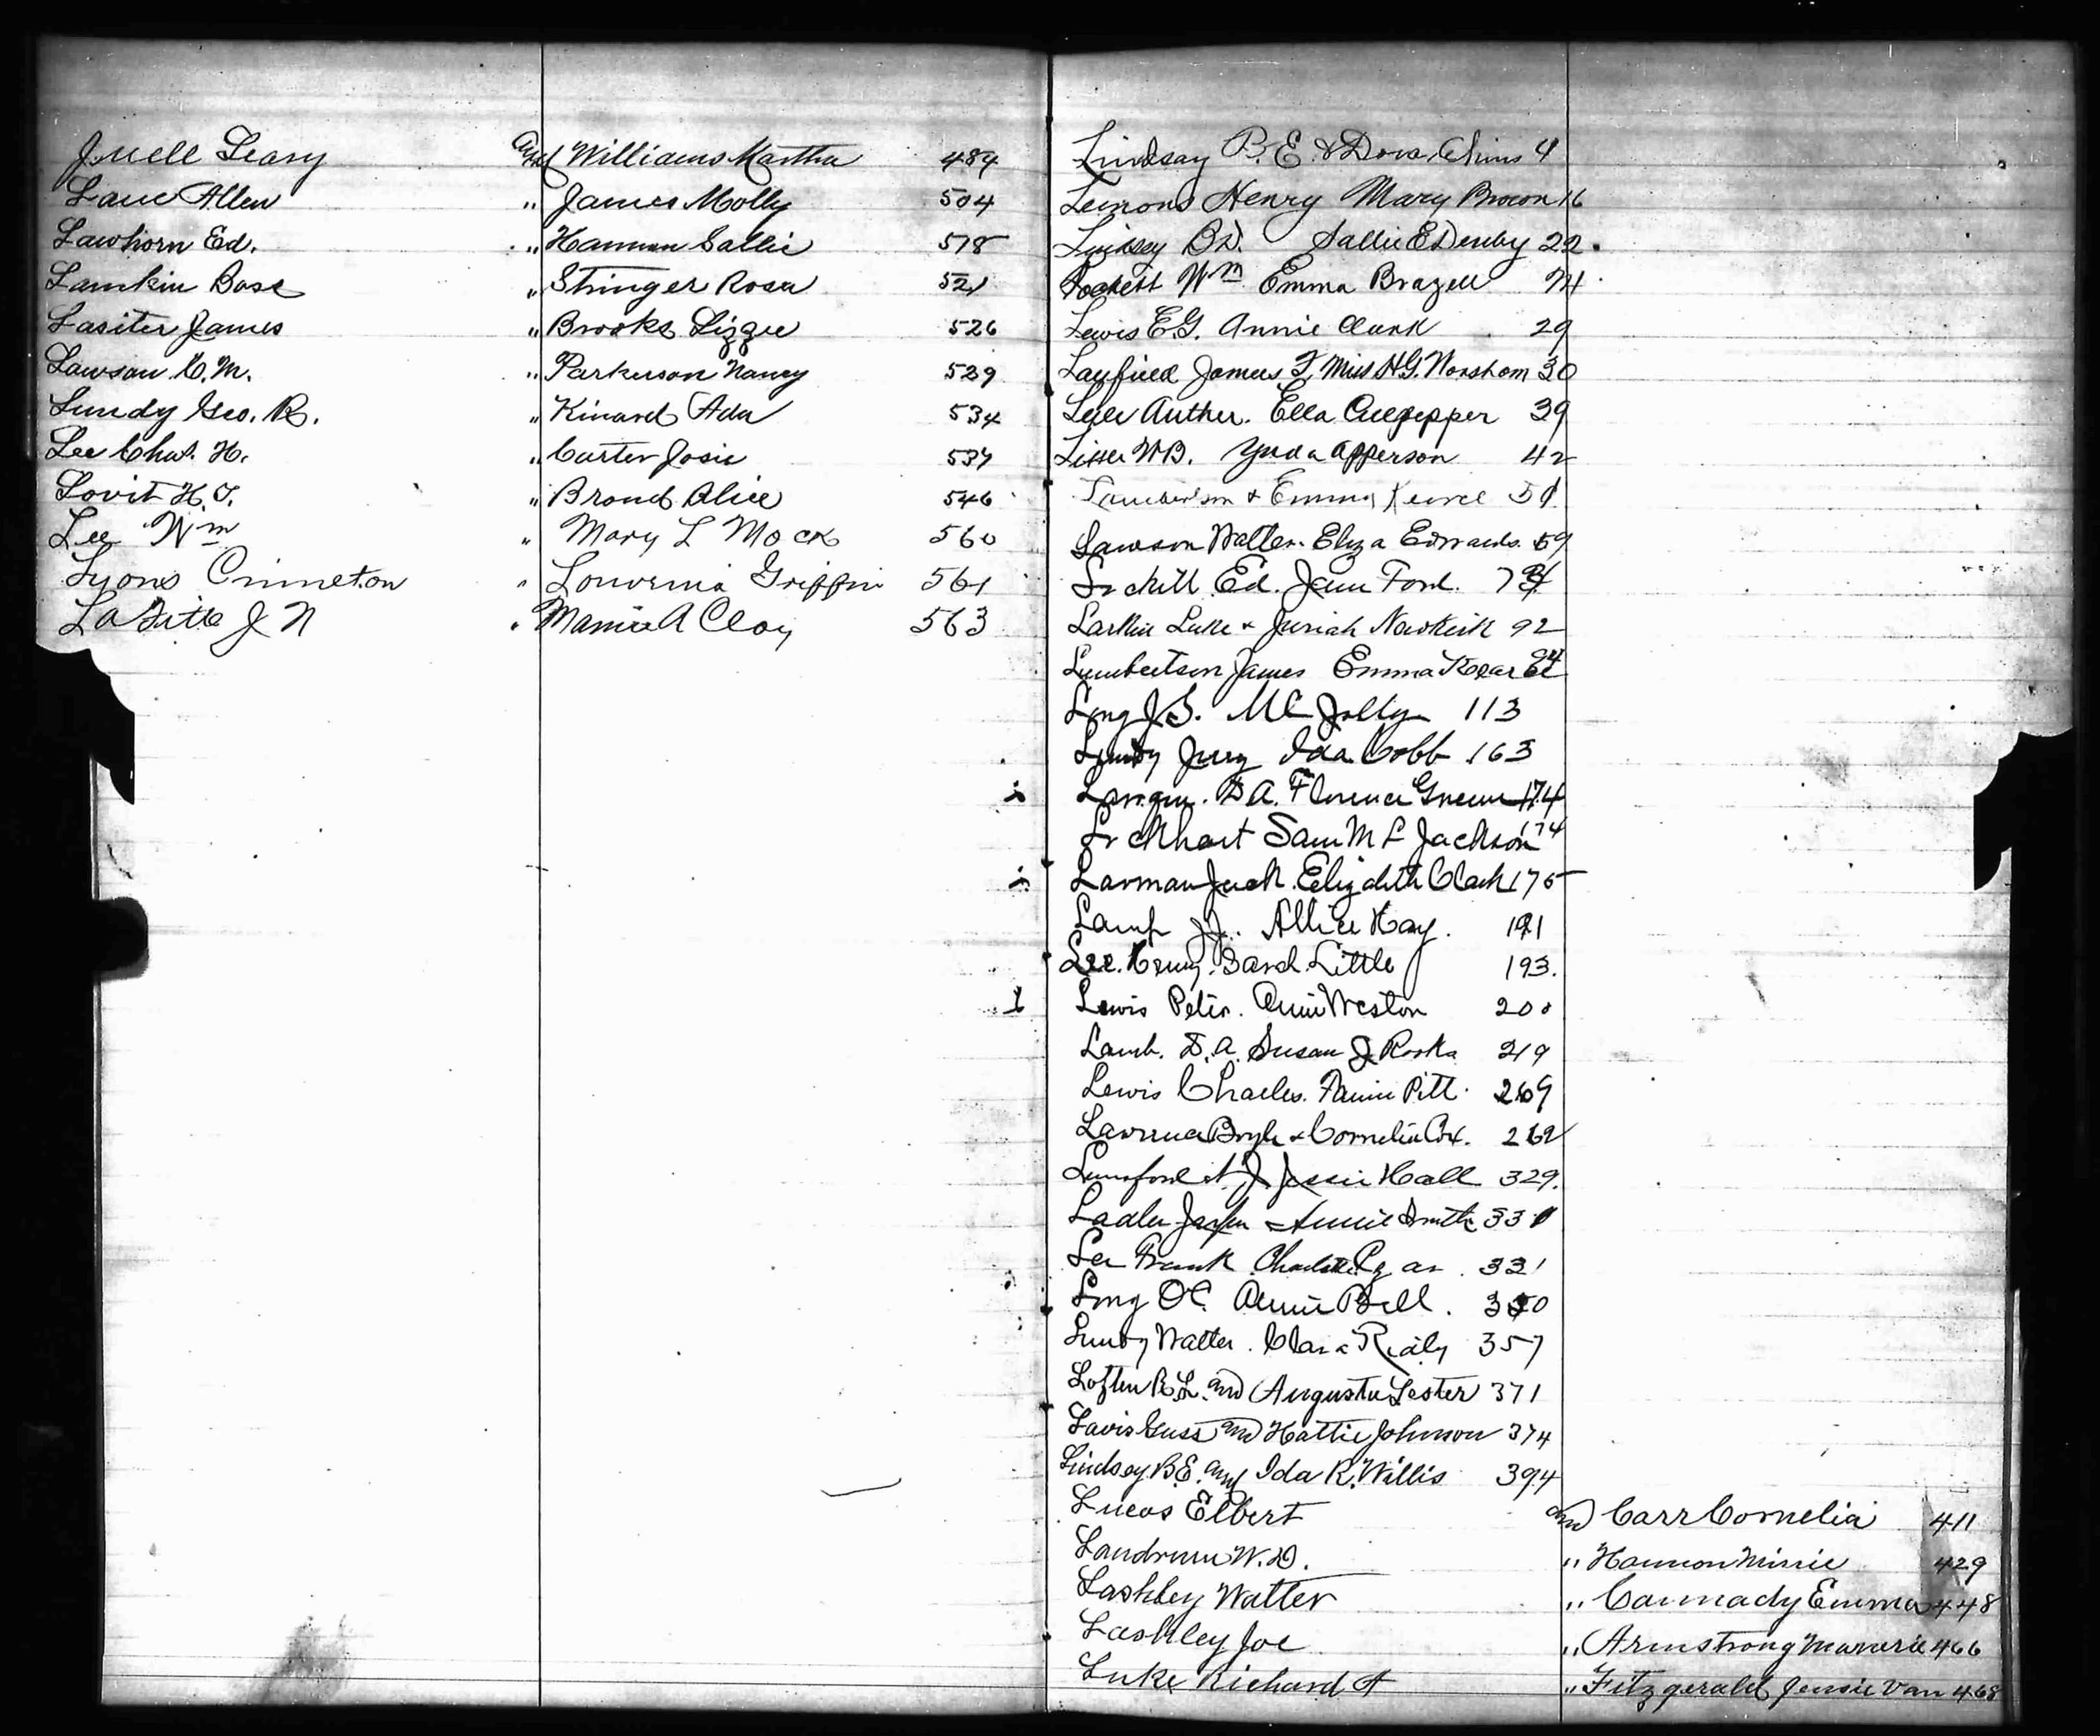 Juell Leary and Williams Martha 484
Lane Allen " James Molly 504
Lawhorn Ed. " Hannan Sallie 518
Lamkin Bose " Stringer Rosa 521
Lasiter James " Brooks Lizzie 526
Lawson C. M. " Parkerson Nancy 529
Lundy Geo. R. " Kinard Ada 534
Lee Chas. H. " Carter Josie 537
Lovit H. T. " Broud Alice 546
Lee Wm " Mary L Mock 560
Lyons " Louvenia Griffin 561
LaFitte J N " Mamie A Cloy 563
Lindsay B. E. & Dora 4
Lemons Henry Mary Brown 16
Lindsey B D. Sallie E Denby 22
Lockett Wm Emma Brazell 24
Lewis E. G. Annie Clark 29
Layfield James F. Miss H. G. Worsham 30
Lyle Auther. Ella Culpepper 39
W B. Apperson 42
& Emma
Lawson Walter. Eliza Edwards. 59
Lockett Ed. Jane Ford.
Larkin Luke & Newkirk 92
Lumbertson James Emma
Long J. S. M C Jolly 113
Lundy Jerry Ida Cobb 163
D A. Florence 174
Lockhart Sam M L Jackson 174
Larman Jack. Elizabeth Clark 175
Lamp J J. Allice Kay. 191
Lee. Henry. Sarah. Little 193.
Lewis Peter. Annie Weston 200
Lamb. D. A. Susan J 219
Lewis Charles. Fannie Pitt. 269
Lawrence & Cornelia Cox. 262
Lunsford A. J. Jessie Hall 329.
Annie Smith 331
Lee Frank 331
Long O C. Annie Bell. 350
Lundy Walter. Clara Reily 357
Loften R. L. and Augusta Lester 371
Lavis Guss and Hattie Johnson 374
Lindsey B. E. and Ida R. Willis 394
Lucas Elbert and Carr Cornelia 411
Landrum W. D. " Hannon Minie 429
Lashley Walter " Cannady Emma 448
Lashley Joe " Armstrong 466
Luke Richard A " Fitzgerald Jensie Van 468